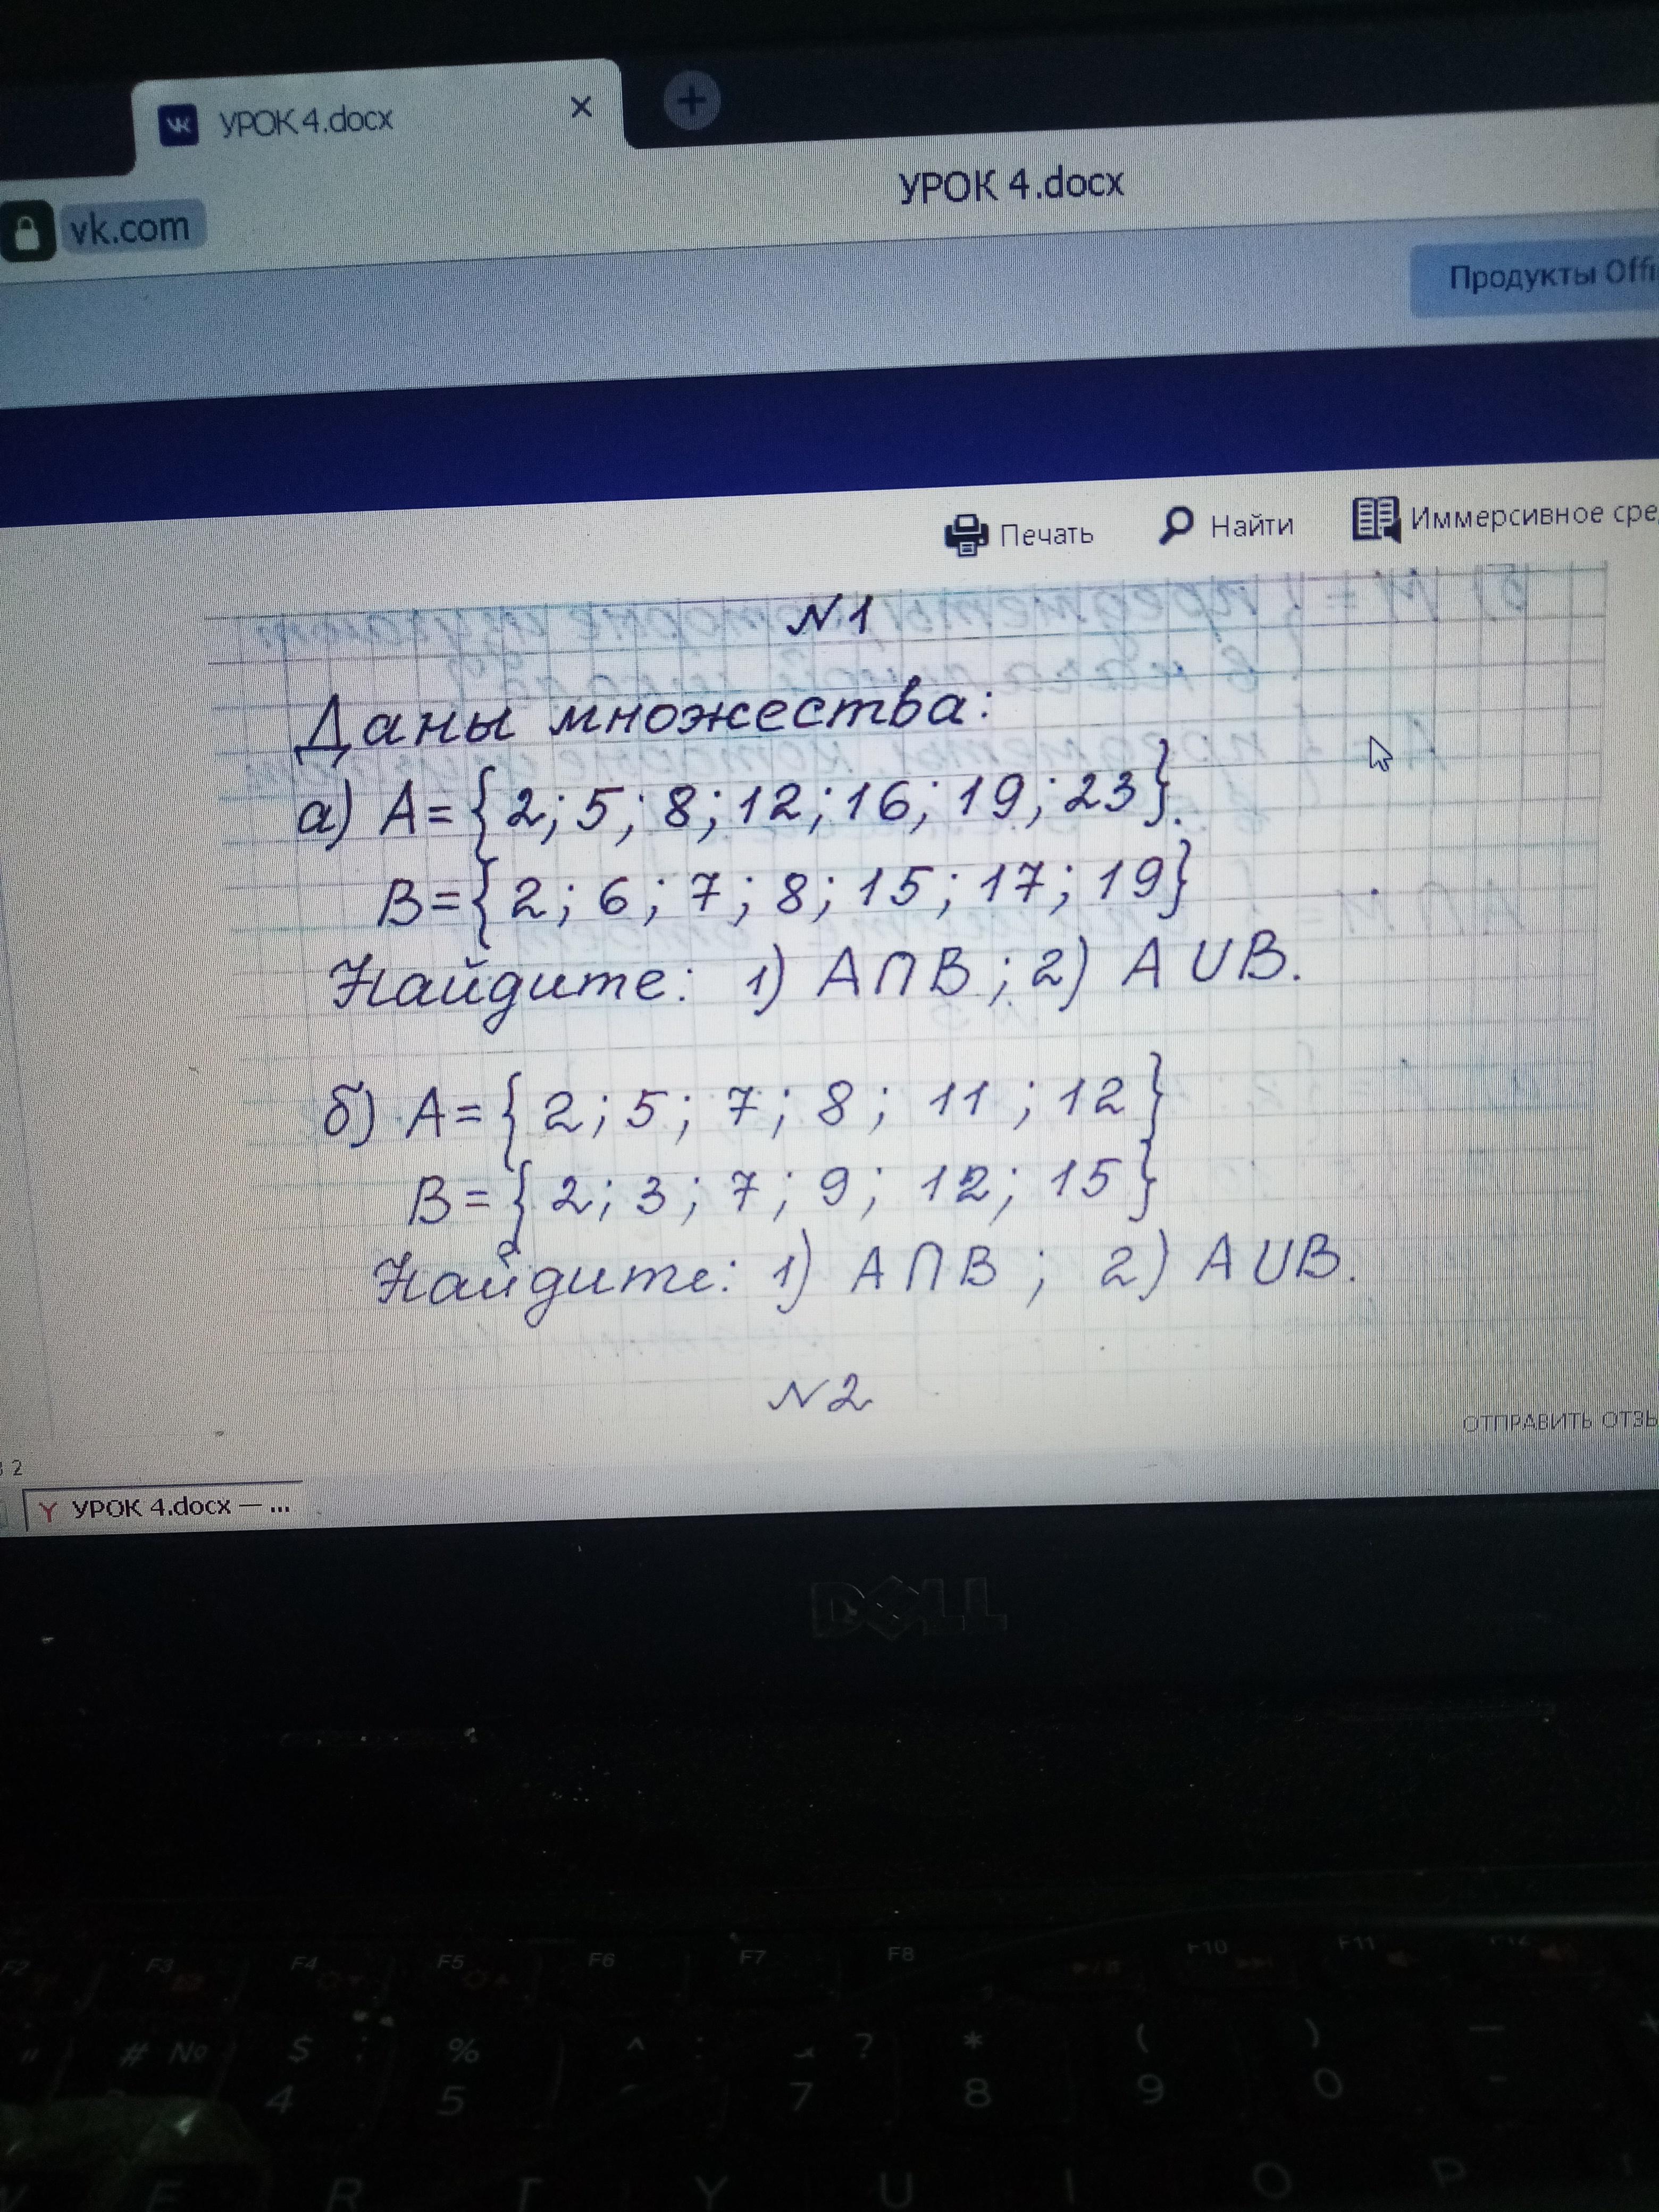 УРОК 4.docx
УРОК 4.docx
vk.com
Продукты Offi
Печать
Найти
Иммерсивное сре
N1
Даны множества:
а) A={2; 5; 8; 12; 16; 19; 23}.
B={2; 6; 7; 8; 15; 17; 19}
Найдите: 1) A∩B; 2) A∪B.
б) A={2; 5; 7; 8; 11; 12}
B={2; 3; 7; 9; 12; 15}
Найдите: 1) A∩B; 2) A∪B.
N2
ОТПРАВИТЬ ОТЗЫ
2
УРОК 4.docx — ...
DELL
F2 F3 F4 F5 F6 F7 F8 F10 F11 F12
" # № $ ; % ^ : ? * ( ) —
4 5 7 8 9 0 -
W E R T Y U I O P